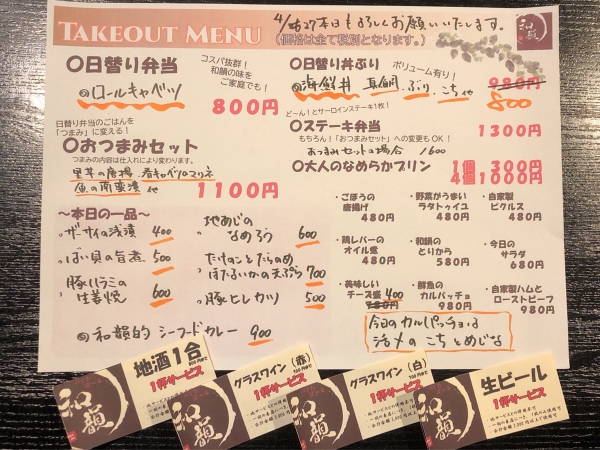 TAKEOUT MENU
4/27 本日もよろしくお願いいたします。
(価格は全て税別となります。)
和韻
〇日替り弁当
コスパ抜群!
和韻の味を
ご家庭でも!
◎ロールキャベツ
800円
〇日替り丼ぶり
ボリューム有り!
◎海鮮丼 真鯛、ぶり、こち 他
980円
800
日替り弁当のごはんを
「つまみ」に変える!
〇おつまみセット
つまみの内容は仕入れにより変わります。
里芋の唐揚、春キャベツのマリネ
魚の南蛮漬 他
1100円
どーん!とサーロインステーキ1枚!
〇ステーキ弁当
1300円
もちろん!「おつまみセット」への変更もOK!
おつまみセットの場合 1600
〇大人のなめらかプリン
1個 300円
4個1000円
~本日の一品~
ザーサイの浅漬 400
ばい貝の旨煮 500
豚ハラミの
生姜焼 600
地あじの
なめろう 600
たけのことたらのめ
ほたるいかの天ぷら 700
豚ヒレカツ 500
◎和韻的 シーフードカレー 900
・ごぼうの
唐揚げ
480円
・野菜がうまい
ラタトゥイユ
480円
・自家製
ピクルス
480円
・鶏レバーの
オイル煮
480円
・和韻の
とりから
580円
・今日の
サラダ
680円
・美味しい
チーズ盛 400
780円
・鮮魚の
カルパッチョ
980円
・自家製ハムと
ローストビーフ
980円
今日のカルパッチョは
活〆のこちとめじな
地酒1合
1杯サービス
和韻
グラスワイン(赤)
1杯サービス
和韻
グラスワイン(白)
1杯サービス
和韻
生ビール
1杯サービス
和韻